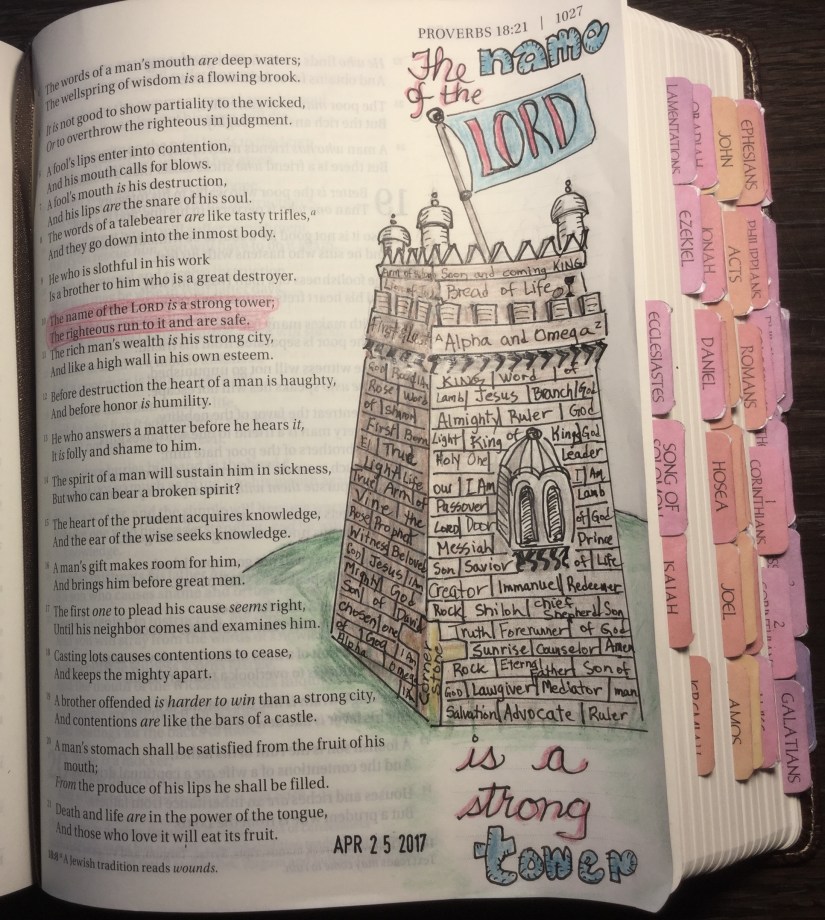 PROVERBS 18:21 | 1027
The words of a man's mouth are deep waters;
The wellspring of wisdom is a flowing brook.
It is not good to show partiality to the wicked,
Or to overthrow the righteous in judgment.
A fool's lips enter into contention,
And his mouth calls for blows.
A fool's mouth is his destruction,
And his lips are the snare of his soul.
The words of a talebearer are like tasty trifles,a
And they go down into the inmost body.
He who is slothful in his work
Is a brother to him who is a great destroyer.
The name of the LORD is a strong tower;
The righteous run to it and are safe.
The rich man's wealth is his strong city,
And like a high wall in his own esteem.
12 Before destruction the heart of a man is haughty,
And before honor is humility.
13 He who answers a matter before he hears it,
It is folly and shame to him.
14 The spirit of a man will sustain him in sickness,
But who can bear a broken spirit?
15 The heart of the prudent acquires knowledge,
And the ear of the wise seeks knowledge.
16 A man's gift makes room for him,
And brings him before great men.
17 The first one to plead his cause seems right,
Until his neighbor comes and examines him.
18 Casting lots causes contentions to cease,
And keeps the mighty apart.
19 A brother offended is harder to win than a strong city,
And contentions are like the bars of a castle.
20 A man's stomach shall be satisfied from the fruit of his
mouth;
From the produce of his lips he shall be filled.
21 Death and life are in the power of the tongue,
And those who love it will eat its fruit.
18:8 a A Jewish tradition reads wounds.
APR 25 2017
The name
of the
LORD
Soon and coming KING
Bread of Life
First & Last
Alpha and Omega
God
Rose Word
of Sharon
First Born
El True
Light Life
True Arm of
Vine the
Rose Prophet
Witness Beloved
God Jesus I Am
Mighty God
Son of David
chosen one
of God I Am
Alpha Omega
I Am
Corner
Stone
KING Word of
Lamb Jesus Branch God
Almighty Ruler God
Light King of King God
Holy One Leader
our I Am I Am
Passover Lamb
Lord Door of God
Messiah Prince
Son Savior of Life
Creator Immanuel Redeemer
Rock Shiloh chief Shepherd Son
Truth Forerunner of God
Sunrise Counselor Amen
Rock Eternal Father Son of
God Lawgiver Mediator man
Salvation Advocate Ruler
is a
strong
tower
LAMENTATIONS
OBADIAH
JOHN
EPHESIANS
EZEKIEL
JONAH
ACTS
PHILIPPIANS
ECCLESIASTES
DANIEL
ROMANS
SONG OF
SOLOMON
HOSEA
1
CORINTHIANS
ISAIAH
JOEL
2
CORINTHIANS
JEREMIAH
AMOS
GALATIANS